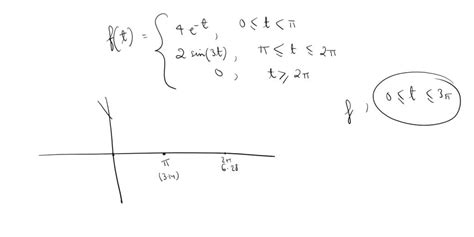 f(t) = { 4 e^-t , 0 ⩽ t < π
2 sin(3t) , π ⩽ t ⩽ 2π
0 , t ⩾ 2π
f , 0 ⩽ t ⩽ 3π
π 2π
(3.14) 6.28